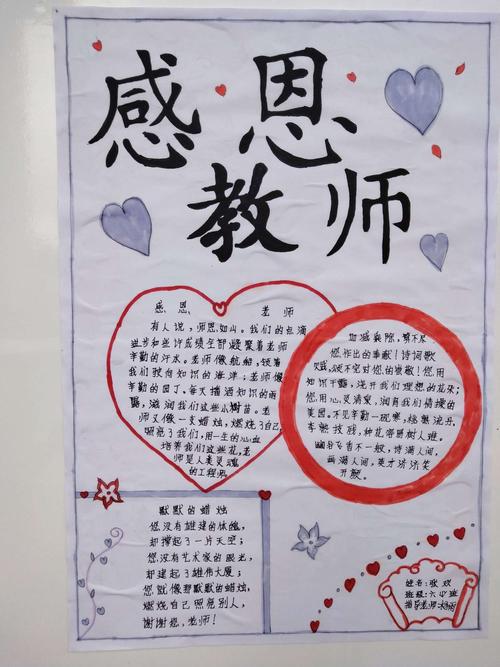 感恩
教师
感恩 老师
有人说，师恩如山。我们的点滴
进步和些许成绩全部凝聚着老师
辛勤的汗水。老师像航船，领着
我们驶向知识的海洋；老师像
辛勤的园丁，每天播洒知识的雨
露，滋润我们这些小树苗。老
师又像一支蜡烛，燃烧了自己，
照亮了我们，用一生的心血
培养我们这些花，老
师是人类灵魂
的工程师
加减乘除，算不尽
您作出的奉献！诗词歌
赋，颂不完对您的崇敬！您用
知识甘露，浇开我们理想的花朵；
您用心灵清泉，润育我们情操的
美园。不见辛勤一现寒，
幽谷飞香不一般，诗满人间，
画满人间，英才济济笑
开颜。
默默的蜡烛
您没有雄健的体魄，
却撑起了一片天空；
您没有艺术家的眼光，
却建起了雄伟大厦；
您就像那默默的蜡烛，
燃烧自己照亮别人，
谢谢您，老师！
姓名：张欢
班级：六(1)班
指导老师：